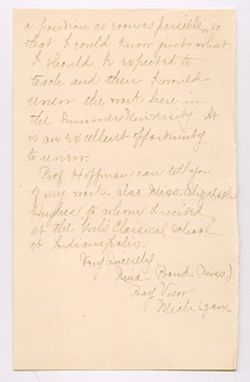 a position as soon as possible, so
that I could know just what
I should be expected to
teach and then I would
review the work here in
the Summer University. It
is an excellent opportunity
to review.
Prof. Hoffman can tell you
of my work also Miss. Elizabeth
Hughes to whom I recited
at the Girls Classical School
at Indianapolis.
Very Sincerely
Bond (Miss.)
Bay View
Michigan.